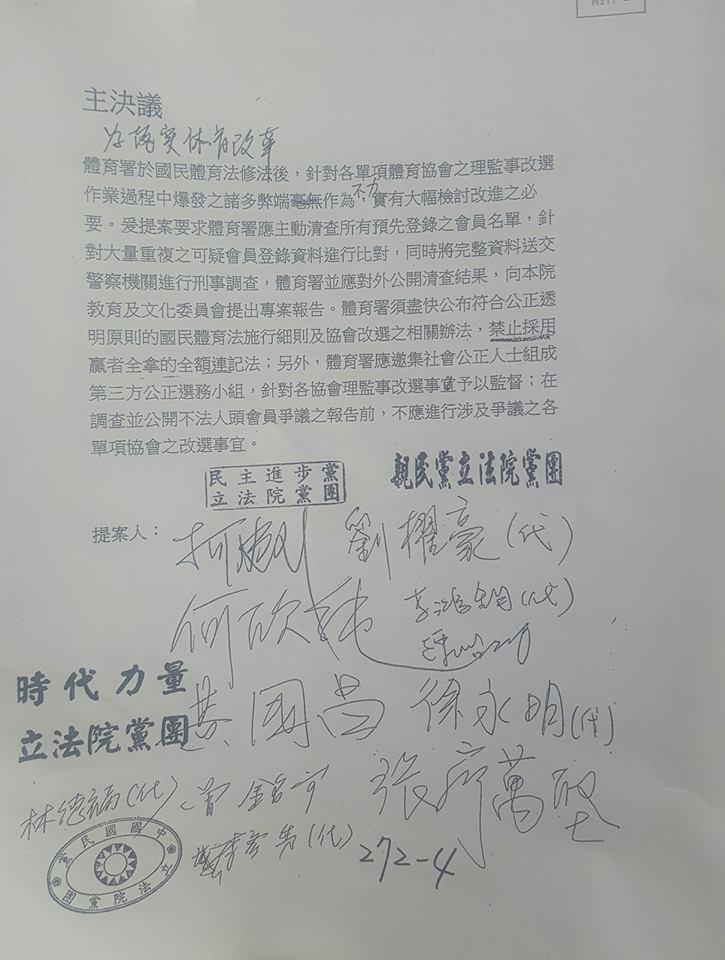 主決議
為落實体育改革
體育署於國民體育法修法後，針對各單項體育協會之理監事改選
作業過程中爆發之諸多弊端毫無作為不力，實有大幅檢討改進之必
要。爰提案要求體育署應主動清查所有預先登錄之會員名單，針
對大量重複之可疑會員登錄資料進行比對，同時將完整資料送交
警察機關進行刑事調查，體育署並應對外公開清查結果，向本院
教育及文化委員會提出專案報告。體育署須盡快公布符合公正透
明原則的國民體育法施行細則及協會改選之相關辦法，禁止採用
贏者全拿的全額連記法；另外，體育署應邀集社會公正人士組成
第三方公正選務小組，針對各協會理監事改選事宜予以監督；在
調查並公開不法人頭會員爭議之報告前，不應進行涉及爭議之各
單項協會之改選事宜。
民主進步黨
立法院黨團
親民黨立法院黨團
提案人：
劉櫂豪(代)
何欣純
李鴻鈞(代)
時代力量
立法院黨團
黃國昌 徐永明(代)
林德福(代) 曾銘宗 張廖萬堅
李彥秀(代)
272-4
中國國民黨
立法院黨團